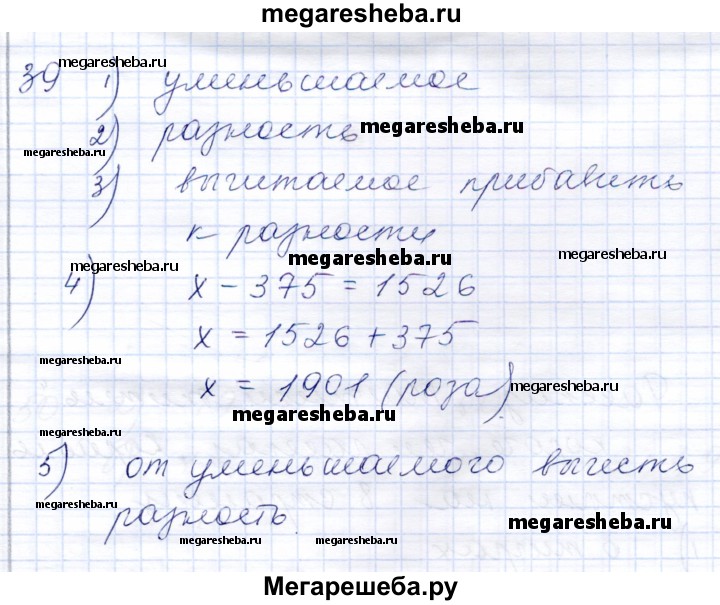 megaresheba.ru
megaresheba.ru
39 1) уменьшаемое
2) разность megaresheba.ru
megaresheba.ru
3) вычитаемое прибавить
к разности
megaresheba.ru
megaresheba.ru
megaresheba.ru
4) x - 375 = 1526
x = 1526 + 375
megaresheba.ru
x = 1901 (роза) megaresheba.ru
megaresheba.ru
megaresheba.ru
5) от уменьшаемого вычесть
megaresheba.ru
разность.
megaresheba.ru
megaresheba.ru
megaresheba.ru
Мегарешеба.ру